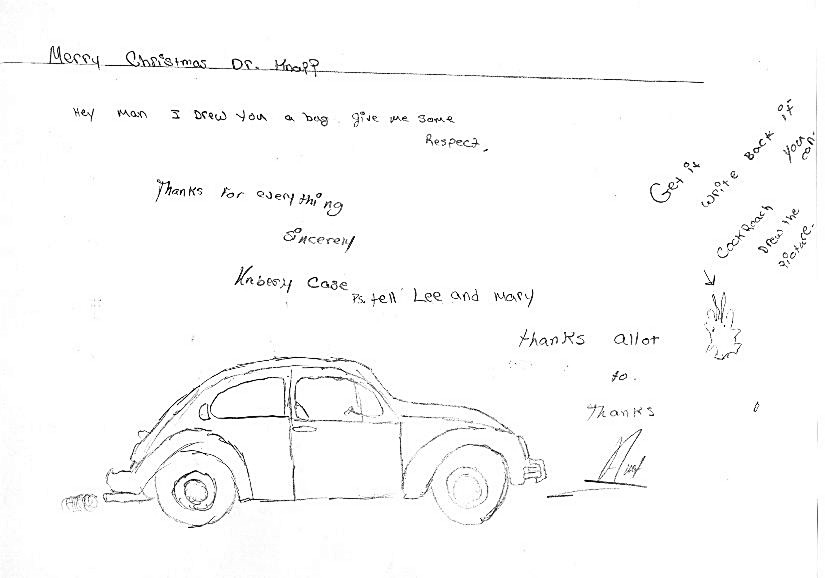 Merry Christmas Dr. Knapp
Hey Man I Drew You a bug. give me some
Respect.
Thanks For everything
Sincerely
Case
Ps. tell Lee and Mary
thanks allot
to.
Thanks
Get it
write Back if
you can.
CockRoach
Drew the
Picture.